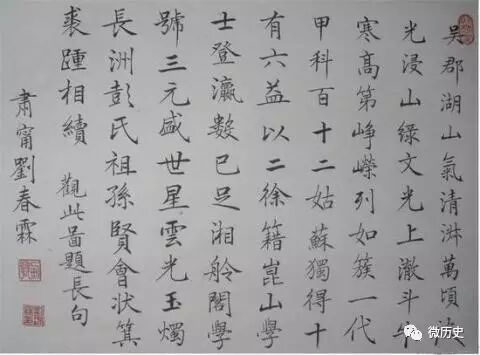 吳郡湖山氣清淑萬頃波
光浸山綠文光上澈斗牛
寒高第崢嶸列如簇一代
甲科百十二姑蘇獨得十
有六益以二徐籍崑山學
士登瀛數已足湘舲閣學
號三元盛世星雲光玉燭
長洲彭氏祖孫賢會狀箕
裘踵相續 觀此啚題長句
肅甯劉春霖
微历史